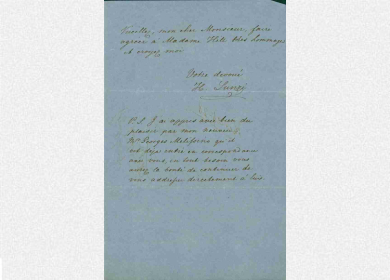 Veuillez, mon cher Monsieur, faire
agréer à Madame mes hommages
et croyez moi
Votre dévoué
H.
P.S. J'ai appris avec bien du
plaisir par mon
Mr Georges qu'il
est déjà entré en correspondance
avec vous, en tout besoin vous
aurez la bonté de continuer de
vous adresser directement à lui.